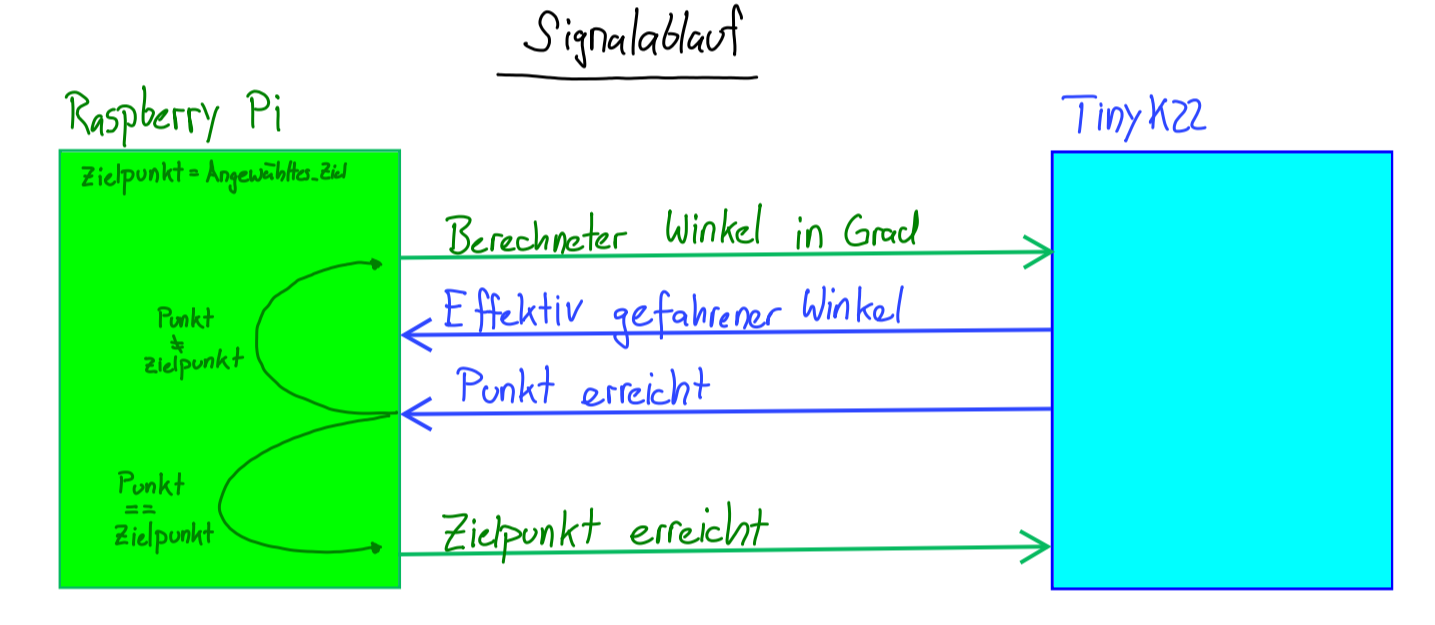 Signalablauf
Raspberry Pi
TinyK22
Zielpunkt = Angewähltes_Ziel
Berechneter Winkel in Grad
Effektiv gefahrener Winkel
Punkt
≠
Zielpunkt
Punkt erreicht
Punkt
==
Zielpunkt
Zielpunkt erreicht